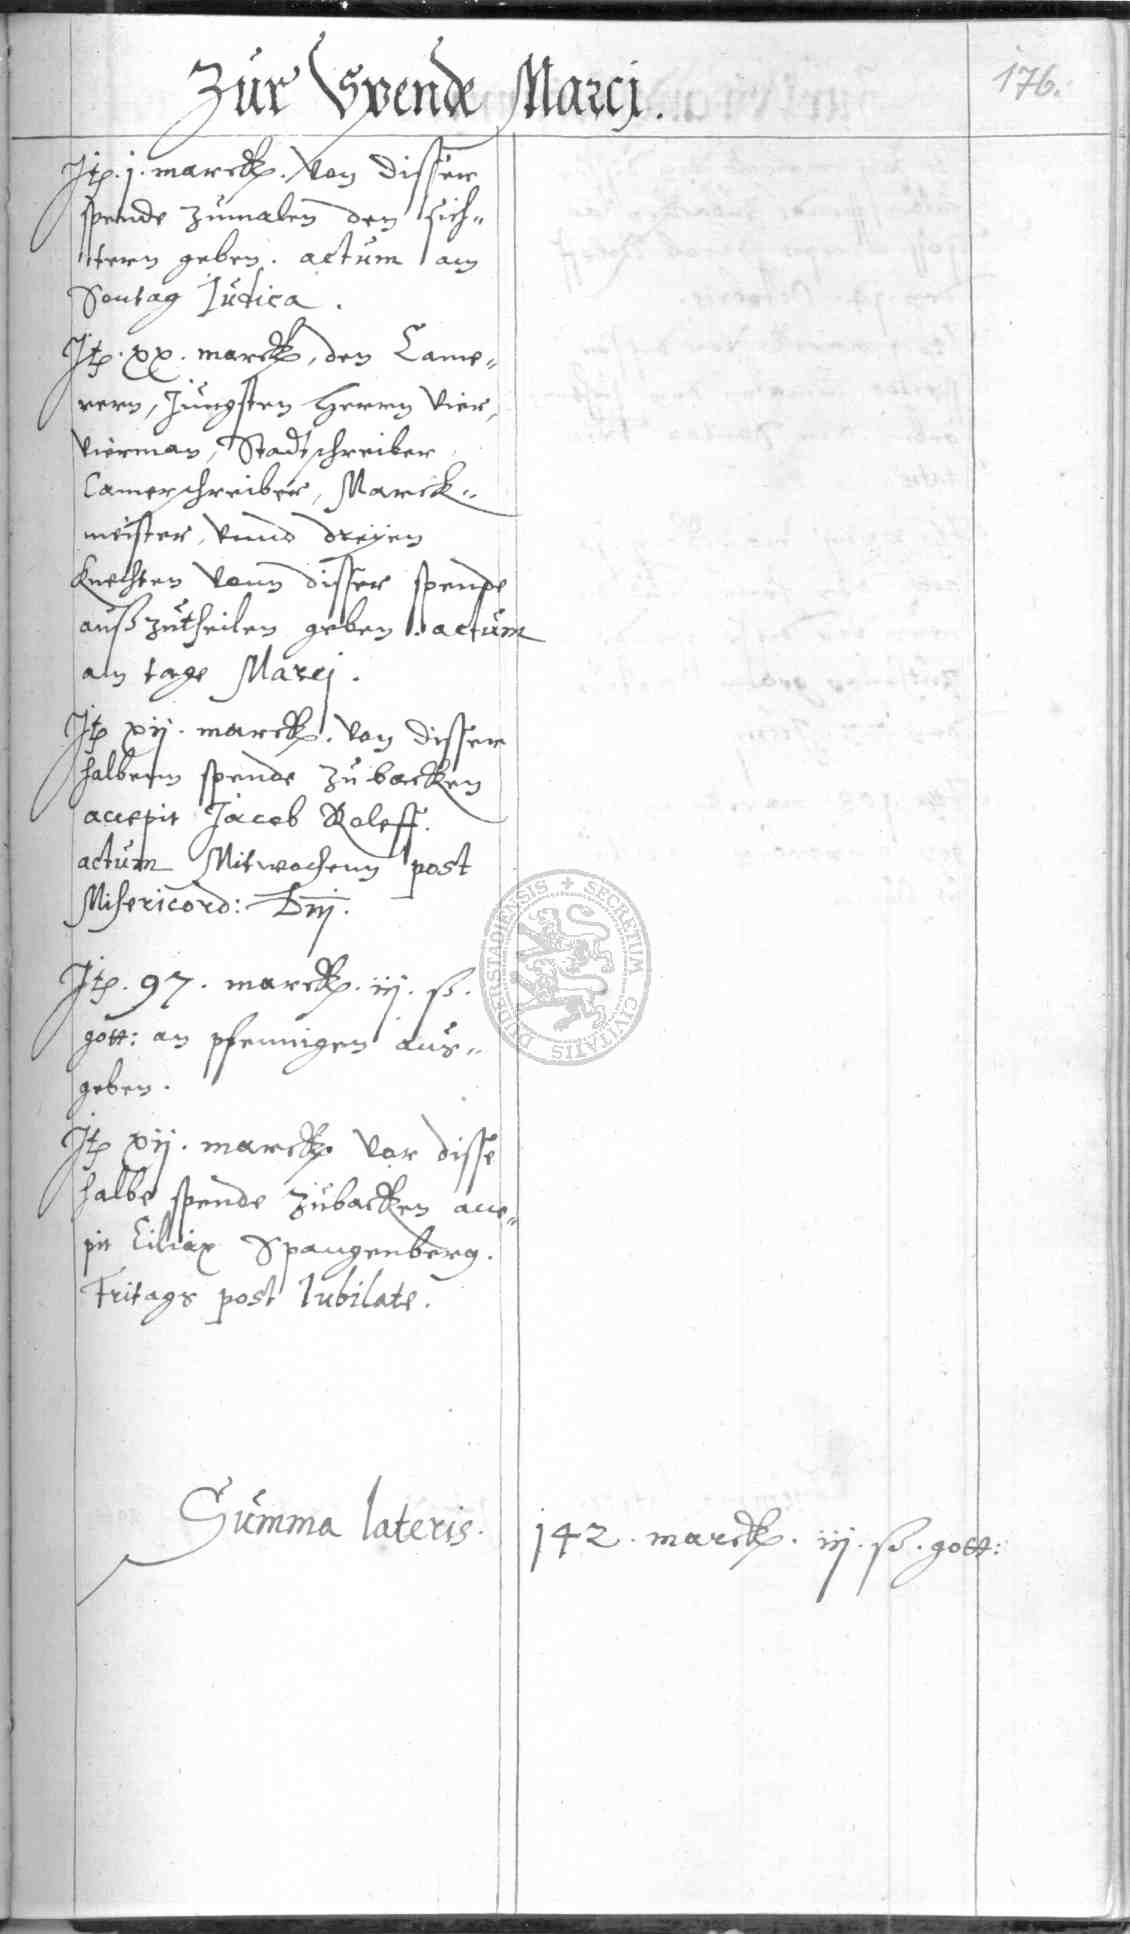 Zur Spende Marcj.
176.
Jtp. j. marckp. von disser
spende zumalen den sich-
tern geben. actum am
Sontag Judica.
Jtp. xx. marckp, den Came-
rern, Jungsten Herrn vier,
vierman, Stadtschreiber
Camerschreiber, Marck-
meister, vnnd dreyen
knechten vonn disser spende
außzutheilen geben. actum
am tage Marcj.
Jtp xij. marckp. von disser
halbenn spende zu backen
accepit Jacob Roleff.
actum Mitwochenn post
Misericord: Dnj.
Jtp. 97. marckp. iij. ß.
gott: an pfennigen aus-
geben.
Jtp xij. marckp vor disse
halbe spende zubacken acce-
pit Ciliax Spangenberg.
Fritags post Iubilate.
Summa lateris. 142. marckp. iij. ß. gott:
SECRETUM CIVITATIS DUDERSTADIENSIS